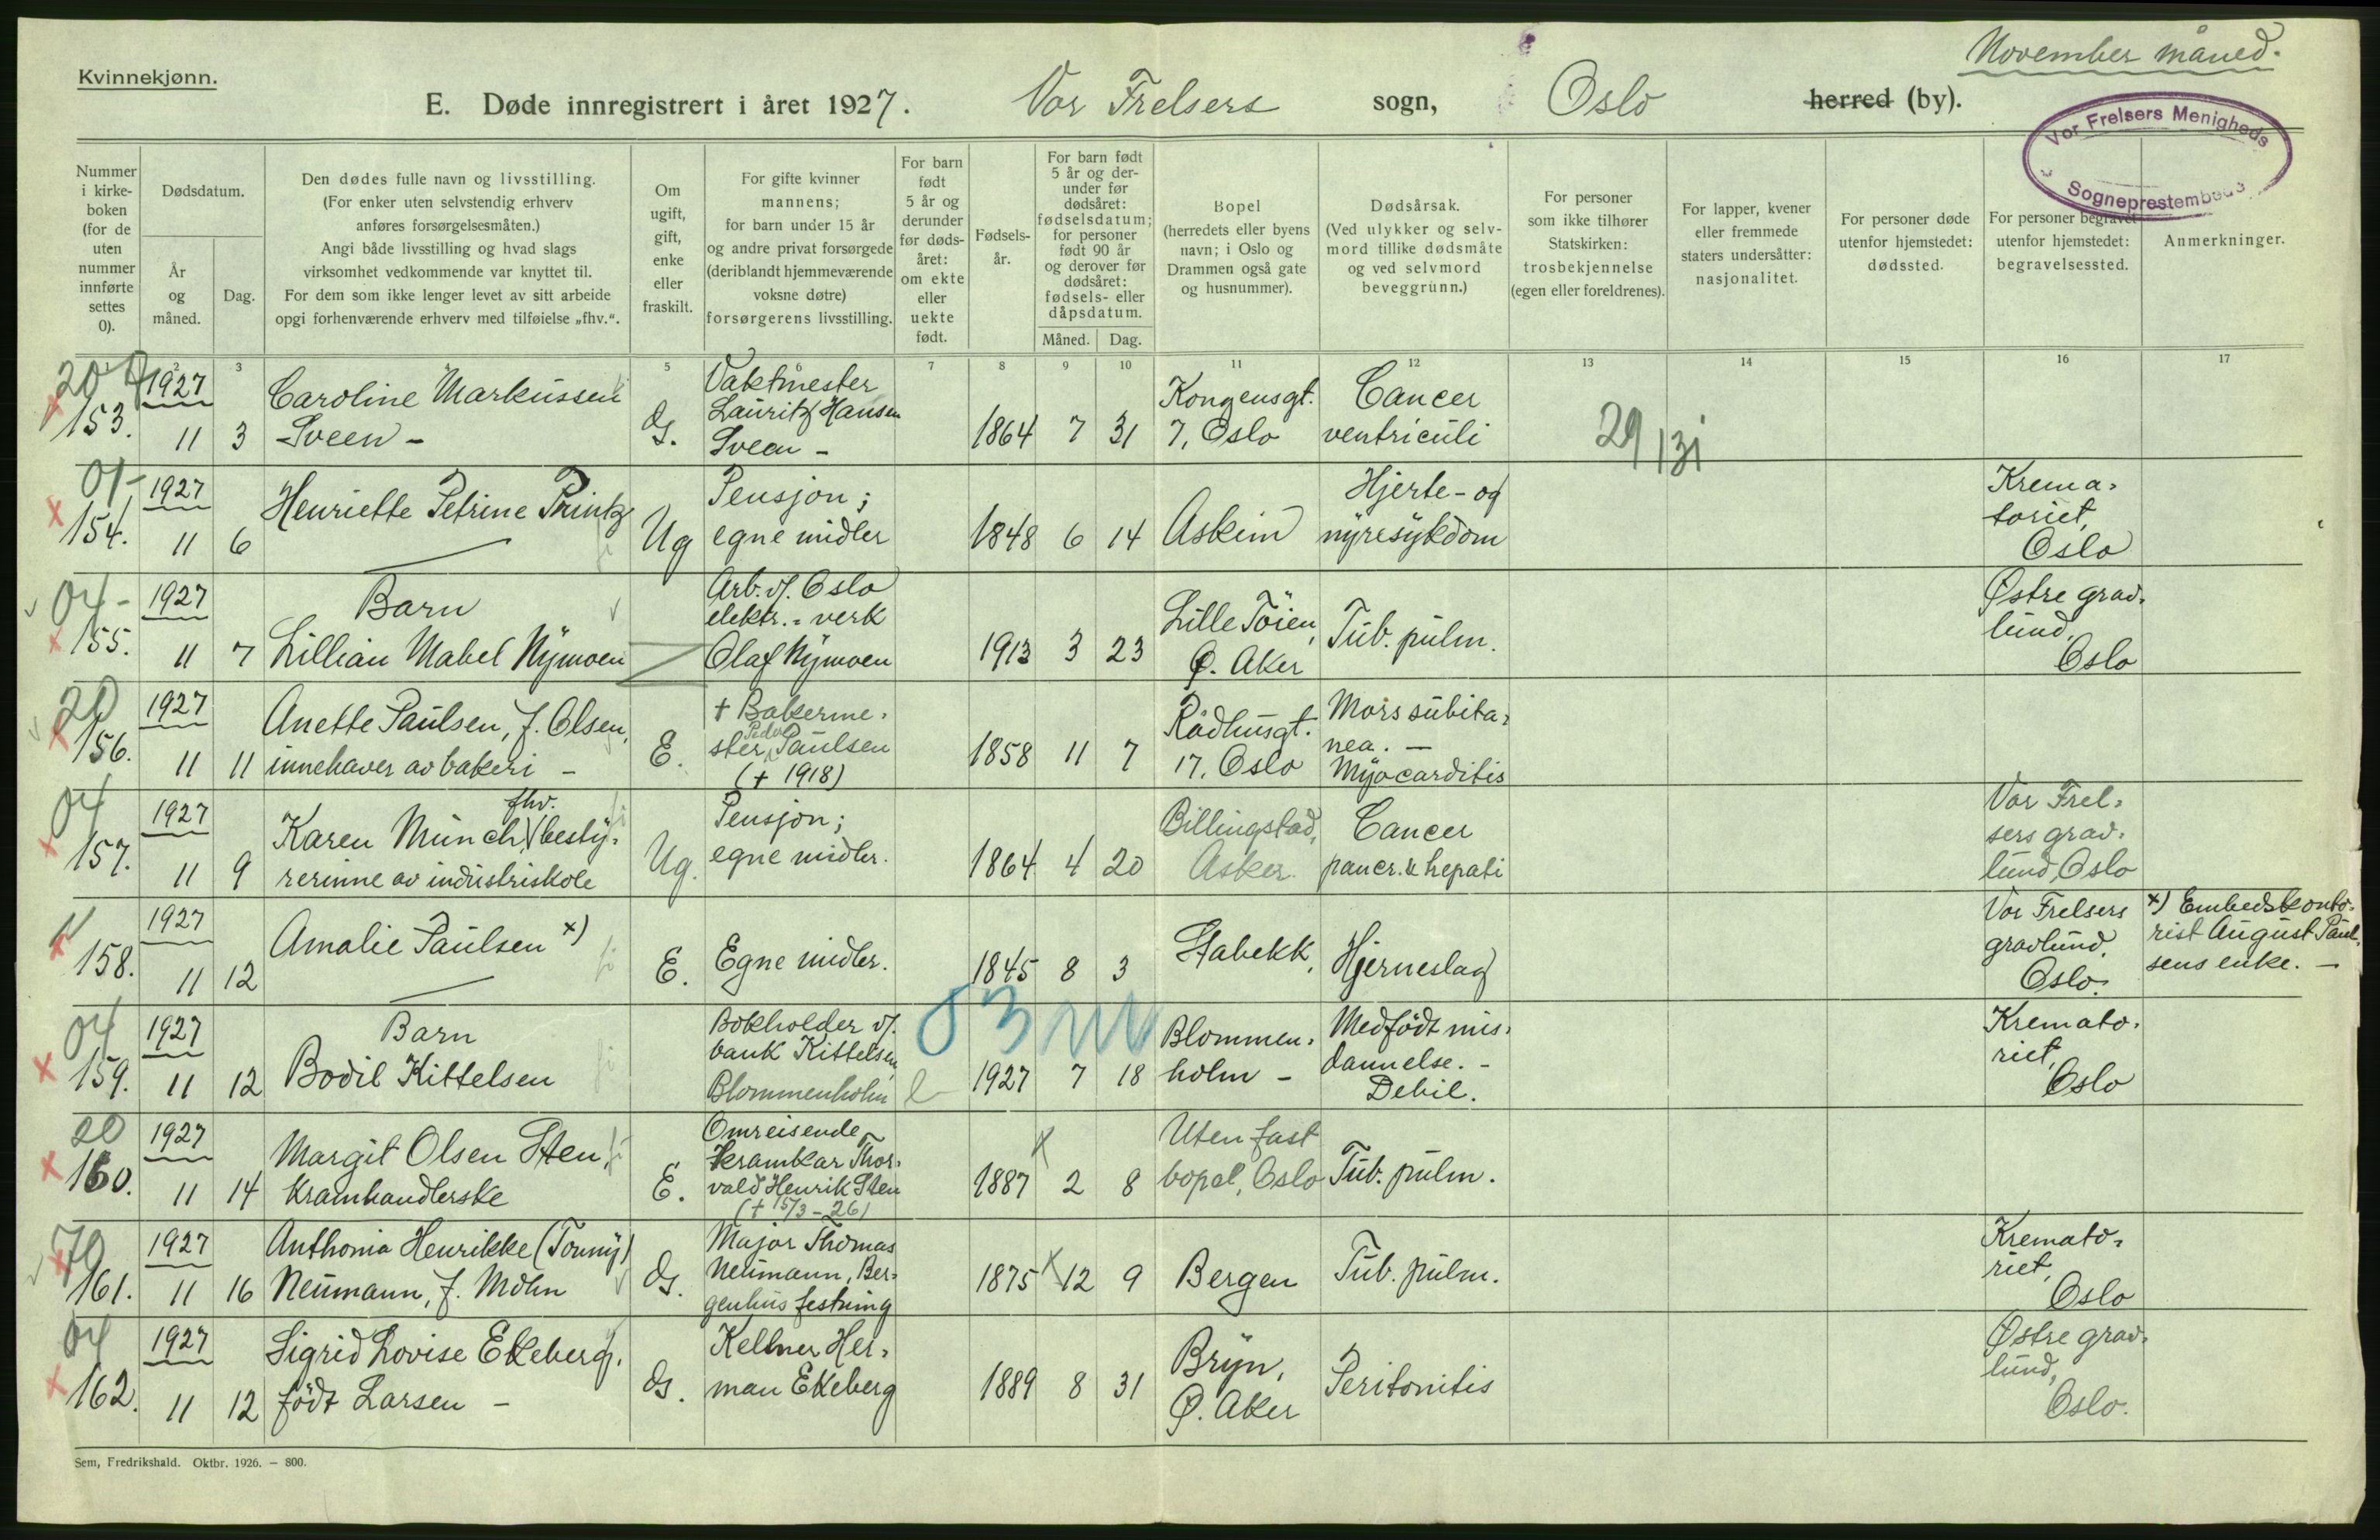 November måned.
Kvinnekjønn.
E. Døde innregistrert i året 1927. Vor Frelsers sogn, Oslo herred (by).
Vor Frelsers Menigheds
Sogneprestembede
Nummer i kirke-boken (for de uten nummer innførte settes 0).
Dødsdatum.
År og måned.
Dag.
Den dødes fulle navn og livsstilling.
(For enker uten selvstendig erhverv
anføres forsørgelsesmåten.)
Angi både livsstilling og hvad slags
virksomhet vedkommende var knyttet til.
For dem som ikke lenger levet av sitt arbeide
opgi forhenværende erhverv med tilføielse „fhv.“.
Om ugift, gift, enke eller fraskilt.
For gifte kvinner
mannens;
for barn under 15 år
og andre privat forsørgede
(deriblandt hjemmeværende
voksne døtre)
forsørgerens livsstilling.
For barn født 5 år og derunder før døds-året: om ekte eller uekte født.
Fødsels-år.
For barn født 5 år og der-under før dødsåret: fødselsdatum; for personer født 90 år og derover før dødsåret: fødsels- eller dåpsdatum.
Måned. Dag.
Bopel
(herredets eller byens
navn; i Oslo og
Drammen også gate
og husnummer).
Dødsårsak.
(Ved ulykker og selv-
mord tillike dødsmåte
og ved selvmord
beveggrunn.)
For personer
som ikke tilhører
Statskirken:
trosbekjennelse
(egen eller foreldrenes).
For lapper, kvener
eller fremmede
staters undersåtter:
nasjonalitet.
For personer døde
utenfor hjemstedet:
dødssted.
For personer begravet
utenfor hjemstedet:
begravelsessted.
Anmerkninger.
2 3 5 7 8 9 10 11 12 13 14 15 16 17
20
153.
1927
11 3
Caroline Markussen
Sveen -
G.
Vaktmester
Lauritz Hansen
Sveen -
1864 7 31
Kongensgt.
7, Oslo
Cancer
ventriculi
29 131
01-
154.
1927
11 6
Henriette Petrine Printz
Ug
Pensjon;
egne midler
1848 6 14
Askim
Hjerte- og
nyresykdom
Krema-
toriet,
Oslo
04-
155.
1927
11 7
Barn
Lillian Mabel Nymoen
Arb. v/. Oslo
elektr.-verk
Olaf Nymoen
1913 3 23
Lille Töien,
Ø. Aker
Tub. pulm.
Østre grav-
lund,
Oslo
20
156.
1927
11 11
Anette Paulsen, f. Olsen,
innehaver av bakeri -
E.
+ Bakerme-
ster Paulsen
(+ 1918)
1858 11 7
Rådhusgt.
17, Oslo
Mors subita-
nea. -
Myocarditis
04
157.
1927
11 9
fhv.
Karen Munch, besty-
rerinne av industriskole
Ug.
Pensjon;
egne midler.
1864 4 20
Billingstad,
Asker.
Cancer
pancr. & hepati
Vor Frel-
sers grav-
lund, Oslo
11
158.
1927
11 12
Amalie Paulsen x)
E.
Egne midler.
1845 8 3
Stabekk,
Hjerneslag
Vor Frelsers
gravlund,
Oslo.
x) Embedskonto-
rist August Paul-
sens enke. -
04
159.
1927
11 12
Barn
Bodil Kittelsen
Bokholder v/.
bank Kittelsen,
Blommenholm
e
03
1927 7 18
Blommen-
holm -
Medfödt mis-
dannelse. -
Debil.
Kremato-
riet,
Oslo
20
160.
1927
11 14
Margit Olsen Sten,
kramhandlerske
E.
Omreisende
kramkar Thor-
vald Henrik Sten
(+ 15/3 - 26)
1887 2 8
Uten fast
bopel, Oslo
Tub. pulm.
70
161.
1927
11 16
Anthonia Henrikke (Tonny)
Neumann, f. Mohn
G.
Major Thomas
Neumann, Ber-
genhus festning
1875 12 9
Bergen
Tub. pulm.
Kremato-
riet,
Oslo
04
162.
1927
11 12
Sigrid Lovise Ekeberg,
födt Larsen -
G.
Kelner Her-
man Ekeberg
1889 8 31
Bryn,
Ø. Aker
Peritonitis
Østre grav-
lund,
Oslo.
Sem, Fredrikshald. Oktbr. 1926. — 800.